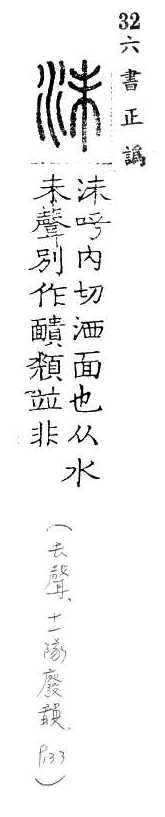 32 六書正譌
沬
沬呼内切洒面也从水
未聲別作靧頮竝非
(去聲、十一隊廢韻, P.133)